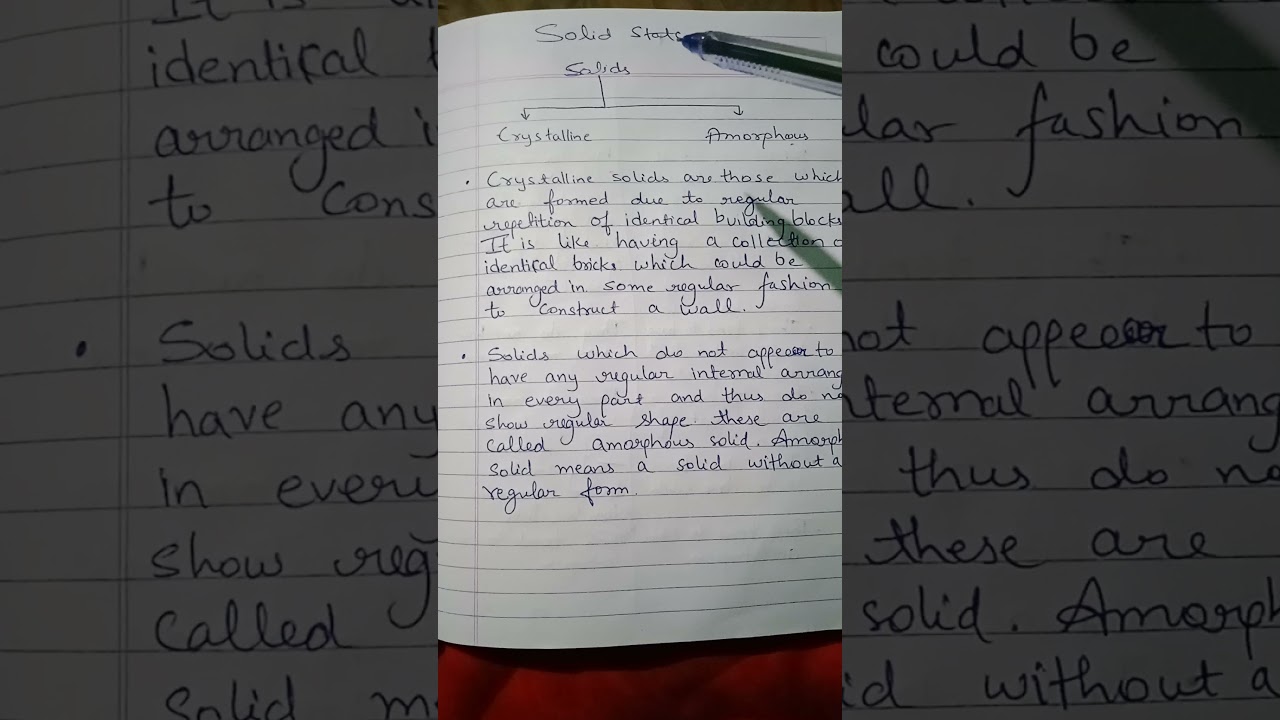 Solid State
Solids
Crystalline Amorphous
. Crystalline solids are those which
are formed due to regular
repetition of identical building blocks
It is like having a collection
identical bricks which could be
arranged in some regular fashion
to construct a wall.
. Solids which do not appear to
have any regular internal arrang
in every part and thus do no
show regular shape these are
called amorphous solid. Amorph
solid means a solid without a
regular form.